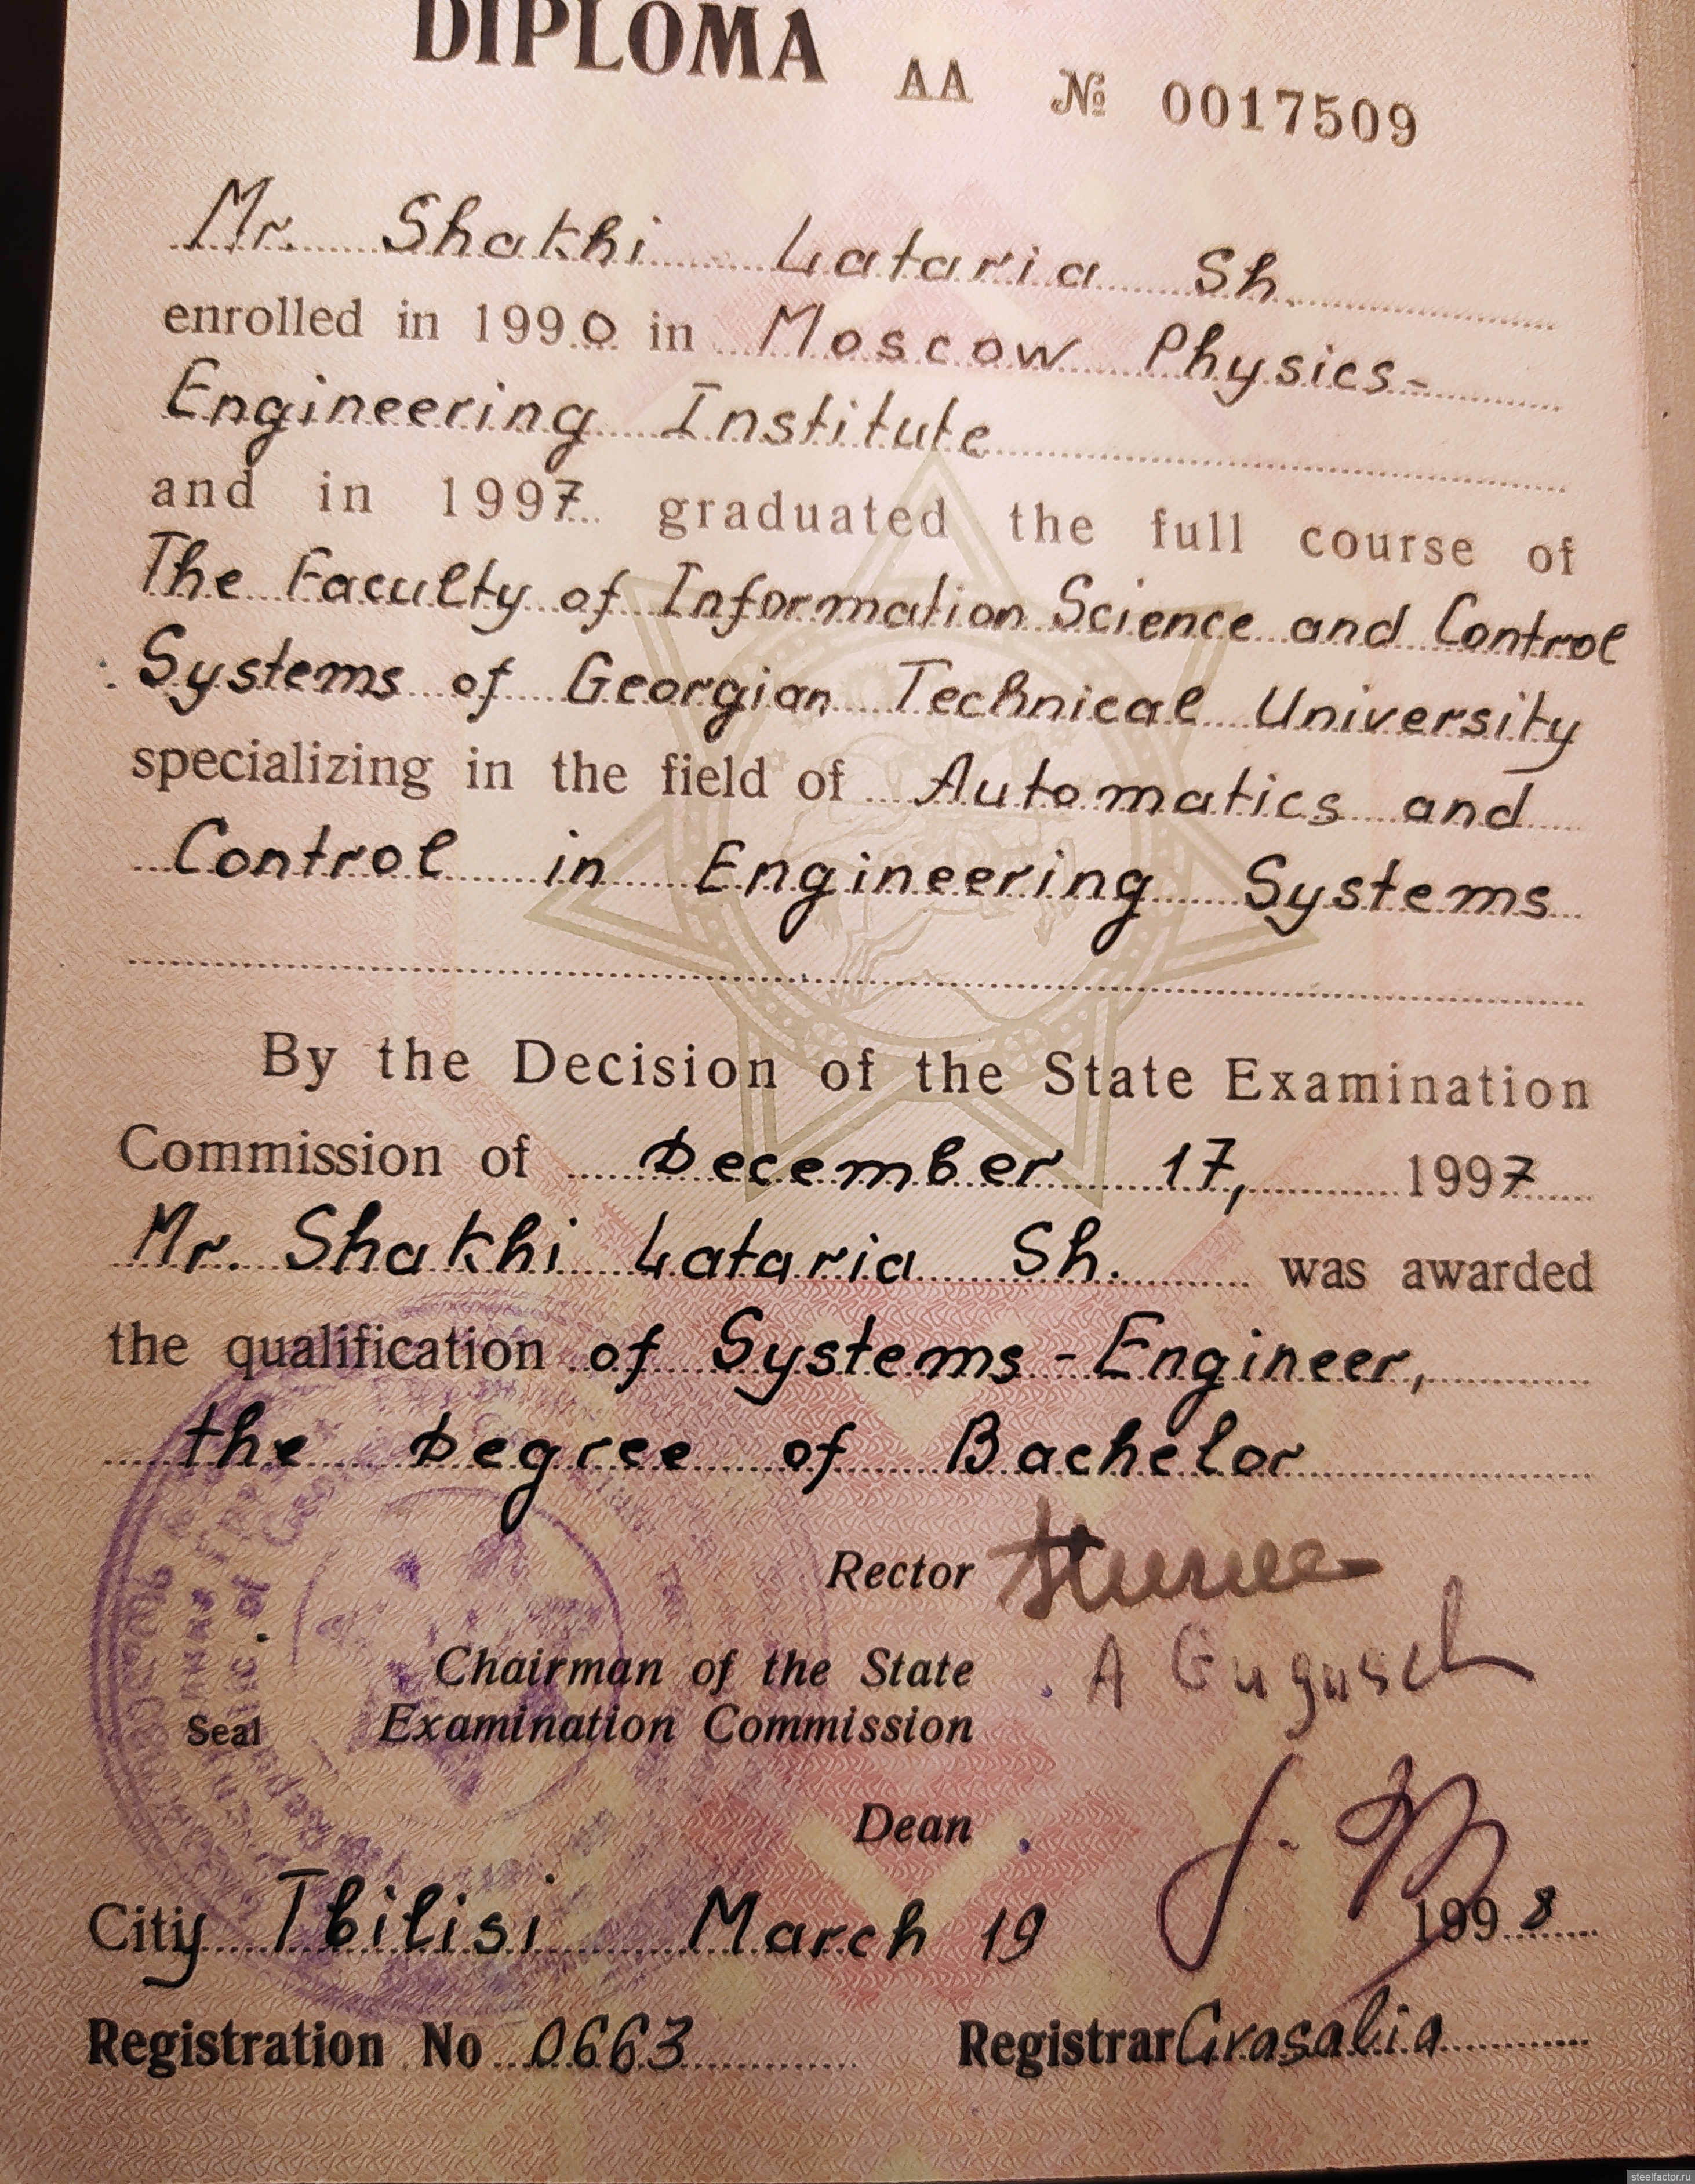 DIPLOMA AA № 0017509
Mr. Shakhi Lataria Sh.
enrolled in 1990 in Moscow Physics-
Engineering Institute
and in 1997 graduated the full course of
The Faculty of Information Science and Control
Systems of Georgian Technical University
specializing in the field of Automatics and
Control in Engineering Systems
By the Decision of the State Examination
Commission of December 17, 1997
Mr. Shakhi Lataria Sh. was awarded
the qualification of Systems-Engineer,
the Degree of Bachelor
Rector
Chairman of the State
Examination Commission
Seal
Dean
City Tbilisi March 19 1998
Registration No 0663 Registrar
steelfactor.ru